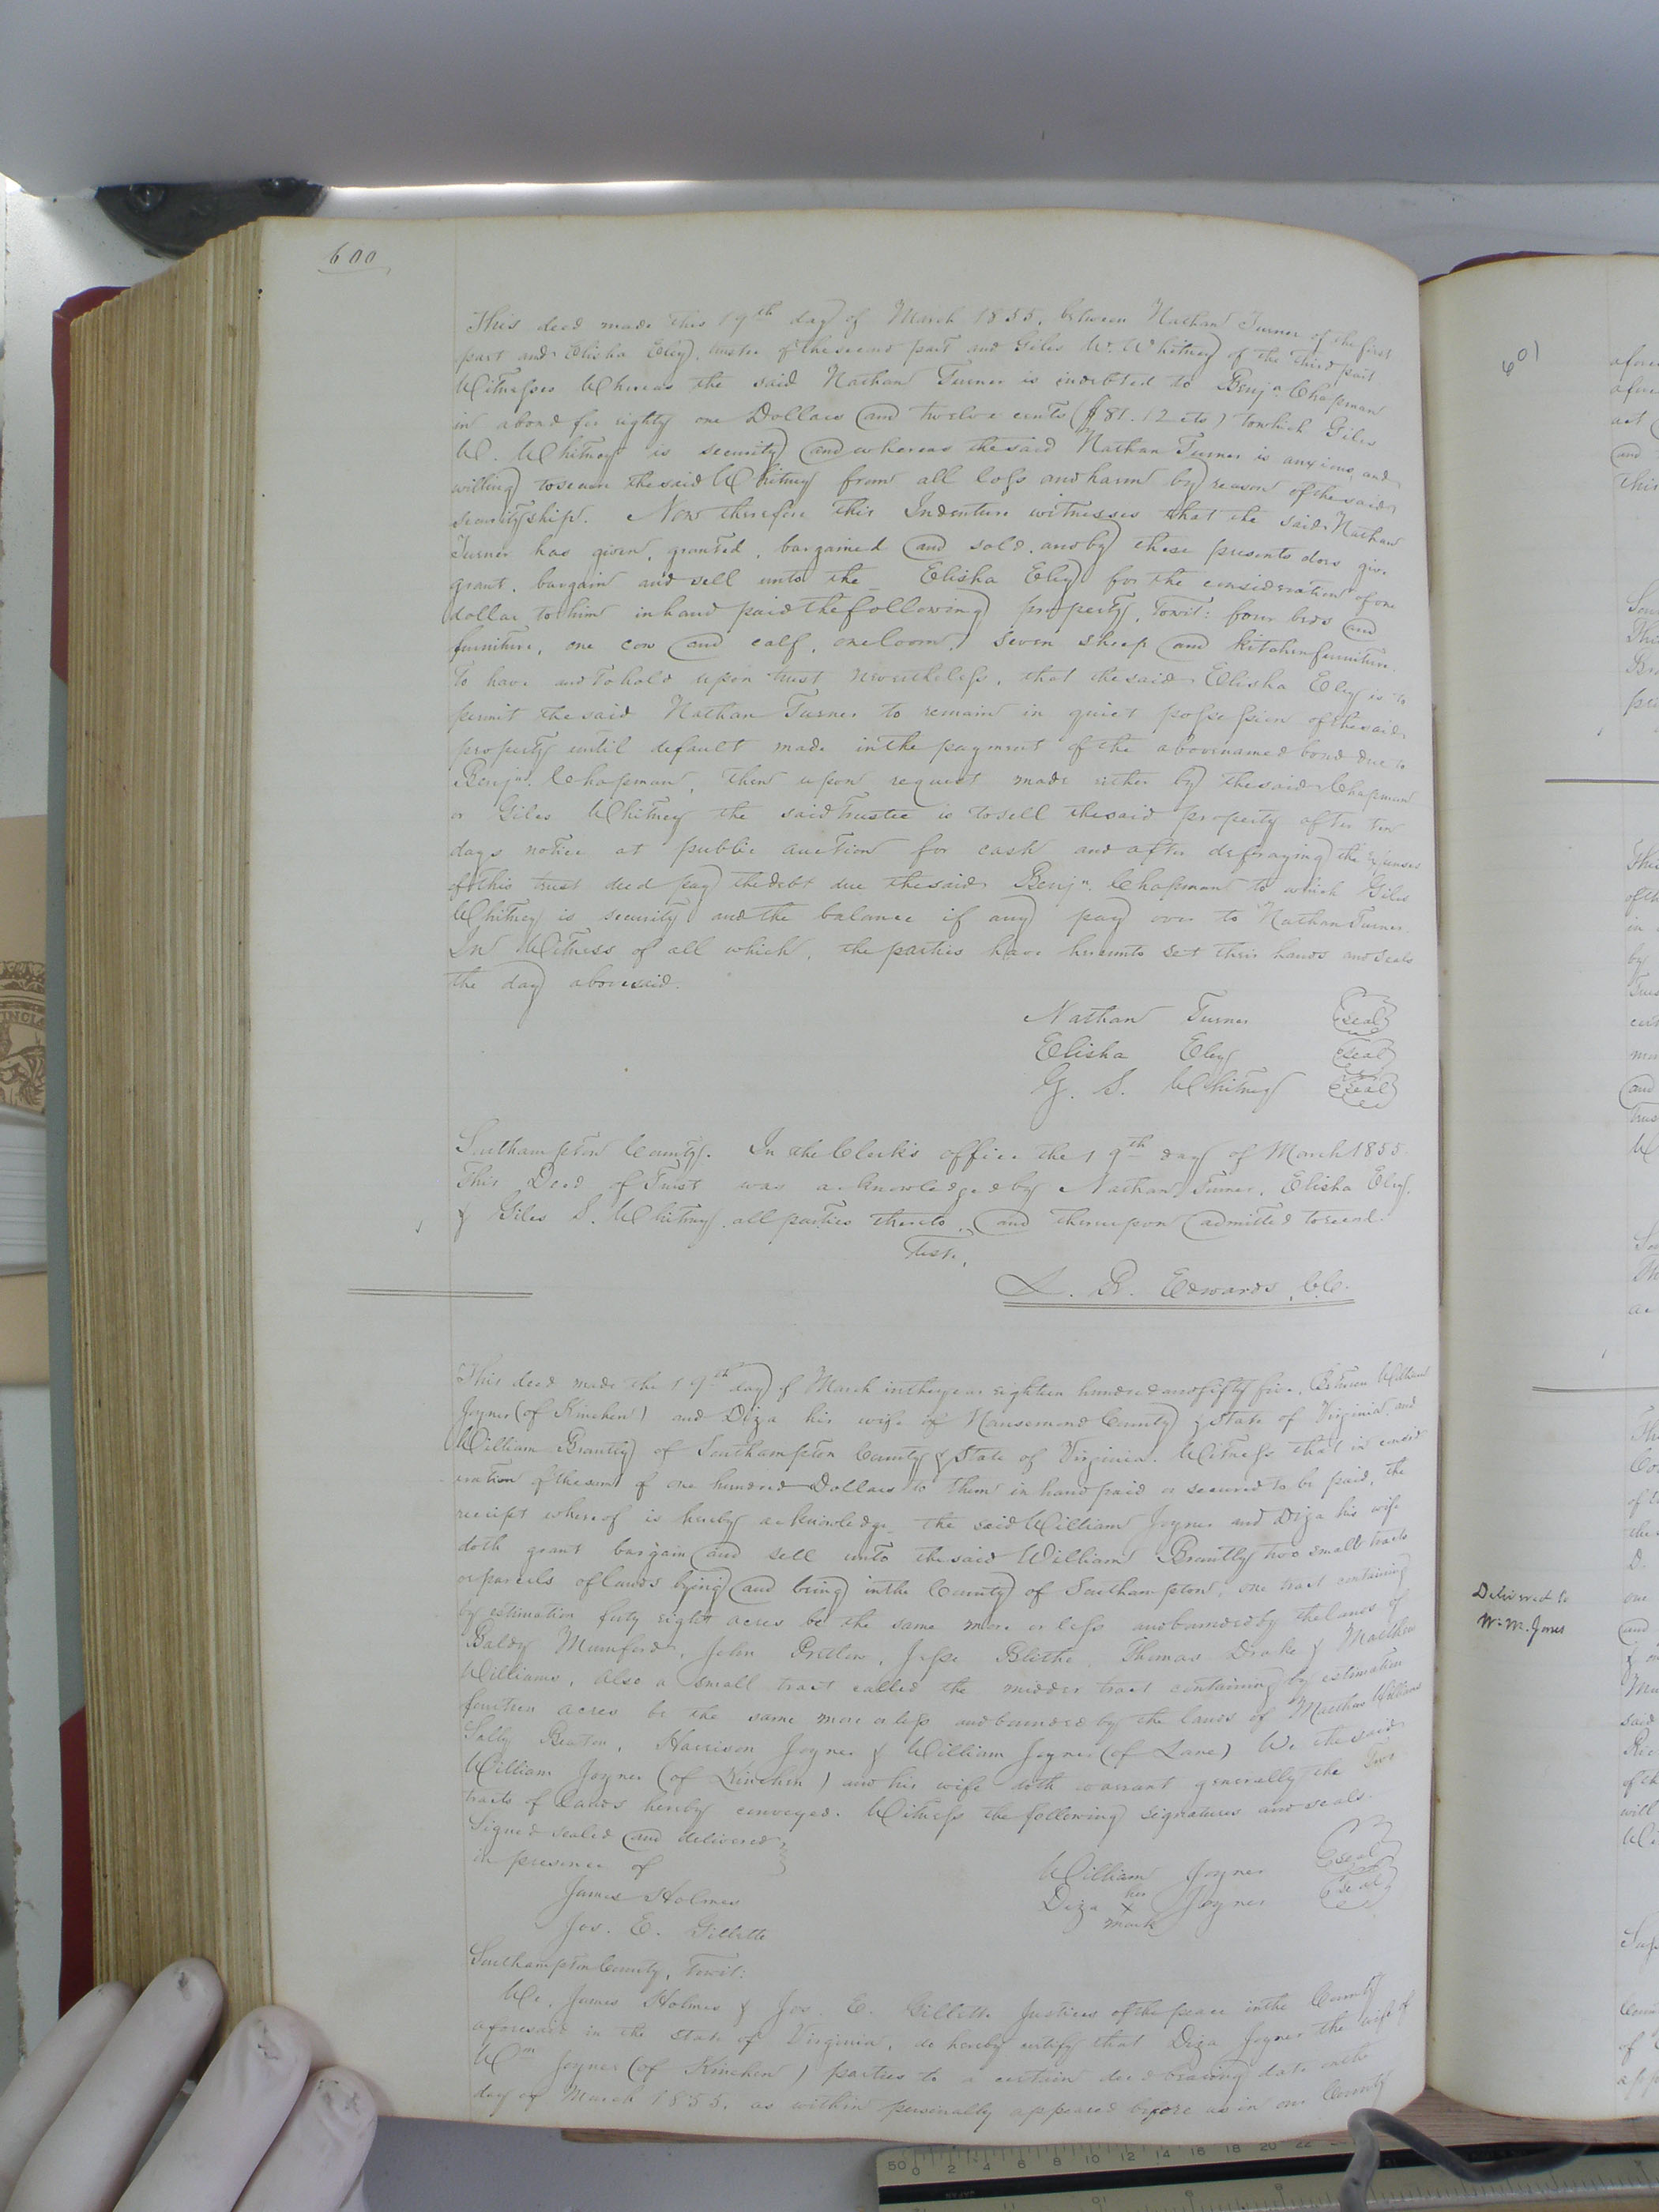 600
This deed made this 19th day of March 1855, between Nathan Turner of the first
part and Elisha Eley, trustee of the second part and Giles W. Whitney of the third part
Witnesses Whereas the said Nathan Turner is indebted to Benjn. Chapman
in a bond for eighty one Dollars and twelve cents ($81.12 cts) to which Giles
W. Whitney is security and whereas the said Nathan Turner is anxious and
willing to secure the said Whitney from all loss and harm by reason of the said
securityship. Now therefore this Indenture witnesses that the said Nathan
Turner has given, granted, bargained and sold, and by these presents does give
grant, bargain and sell unto the Elisha Eley for the consideration of one
dollar to him in hand paid the following property, Towit: four beds and
furniture, one cow and calf, one loom, seven sheep and kitchen furniture.
To have and to hold upon trust nevertheless, that the said Elisha Eley is to
permit the said Nathan Turner to remain in quiet possession of the said
property until default made in the payment of the abovenamed bond due to
Benjn. Chapman, then upon request made either by the said Chapman
or Giles Whitney the said Trustee is to sell the said property after ten
days notice at public auction for cash and after defraying the expenses
of this trust deed pay the debt due the said Benjn. Chapman to which Giles
Whitney is security and the balance if any pay over to Nathan Turner.
In Witness of all which, the parties have hereunto set their hands and seals
the day abovesaid.
Nathan Turner seal
Elisha Eley seal
G. S. Whitney seal
Southampton County. In the Clerk's office the 19th day of March 1855.
This Deed of Trust was acknowledged by Nathan Turner, Elisha Eley,
& Giles S. Whitney, all parties thereto, and thereupon admitted to record.
Test,
L. R. Edwards, C.C.
This deed made the 19th day of March in the year eighteen hundred and fifty five, Between William
Joyner (of Kinchen) and Diza his wife of Nansemond County & State of Virginia, and
William Brantly of Southampton County & State of Virginia. Witness that in consid
eration of the sum of one hundred Dollars to them in hand paid or secured to be paid, the
receipt whereof is hereby acknowledge the said William Joyner and Diza his wife
doth grant bargain and sell unto the said William Brantly two small tracts
or parcels of lands lying and being in the County of Southampton, one tract containing
by estimation forty eight acres be the same more or less and bounded by the lands of
Baldy Mumford, John Pretlow, Jesse Blithe, Thomas Drake & Matthew
Williams, also a small tract called the midder tract containing by estimation
fourteen acres be the same more or less and bounded by the lands of Matthew Williams
Sally Beaton, Harrison Joyner & William Joyner (of Lane) We the said
William Joyner (of Kinchen) and his wife doth warrant generally the Two
tracts of Lands hereby conveyed. Witness the following signatures and seals.
Signed sealed and delivered
in presence of
James Holmes
Jos. E. Gillette
William Joyner seal
Diza her X mark Joyner seal
Southampton County, Towit:
We, James Holmes & Jos. E. Gillette Justices of the peace in the County
aforesaid in the state of Virginia, do hereby certify that Diza Joyner the wife of
Wm Joyner (of Kinchen) parties to a certain deed bearing date on the
day of March 1855, as within personally appeared before us in our County
601
Delivered to
W. M. Jones